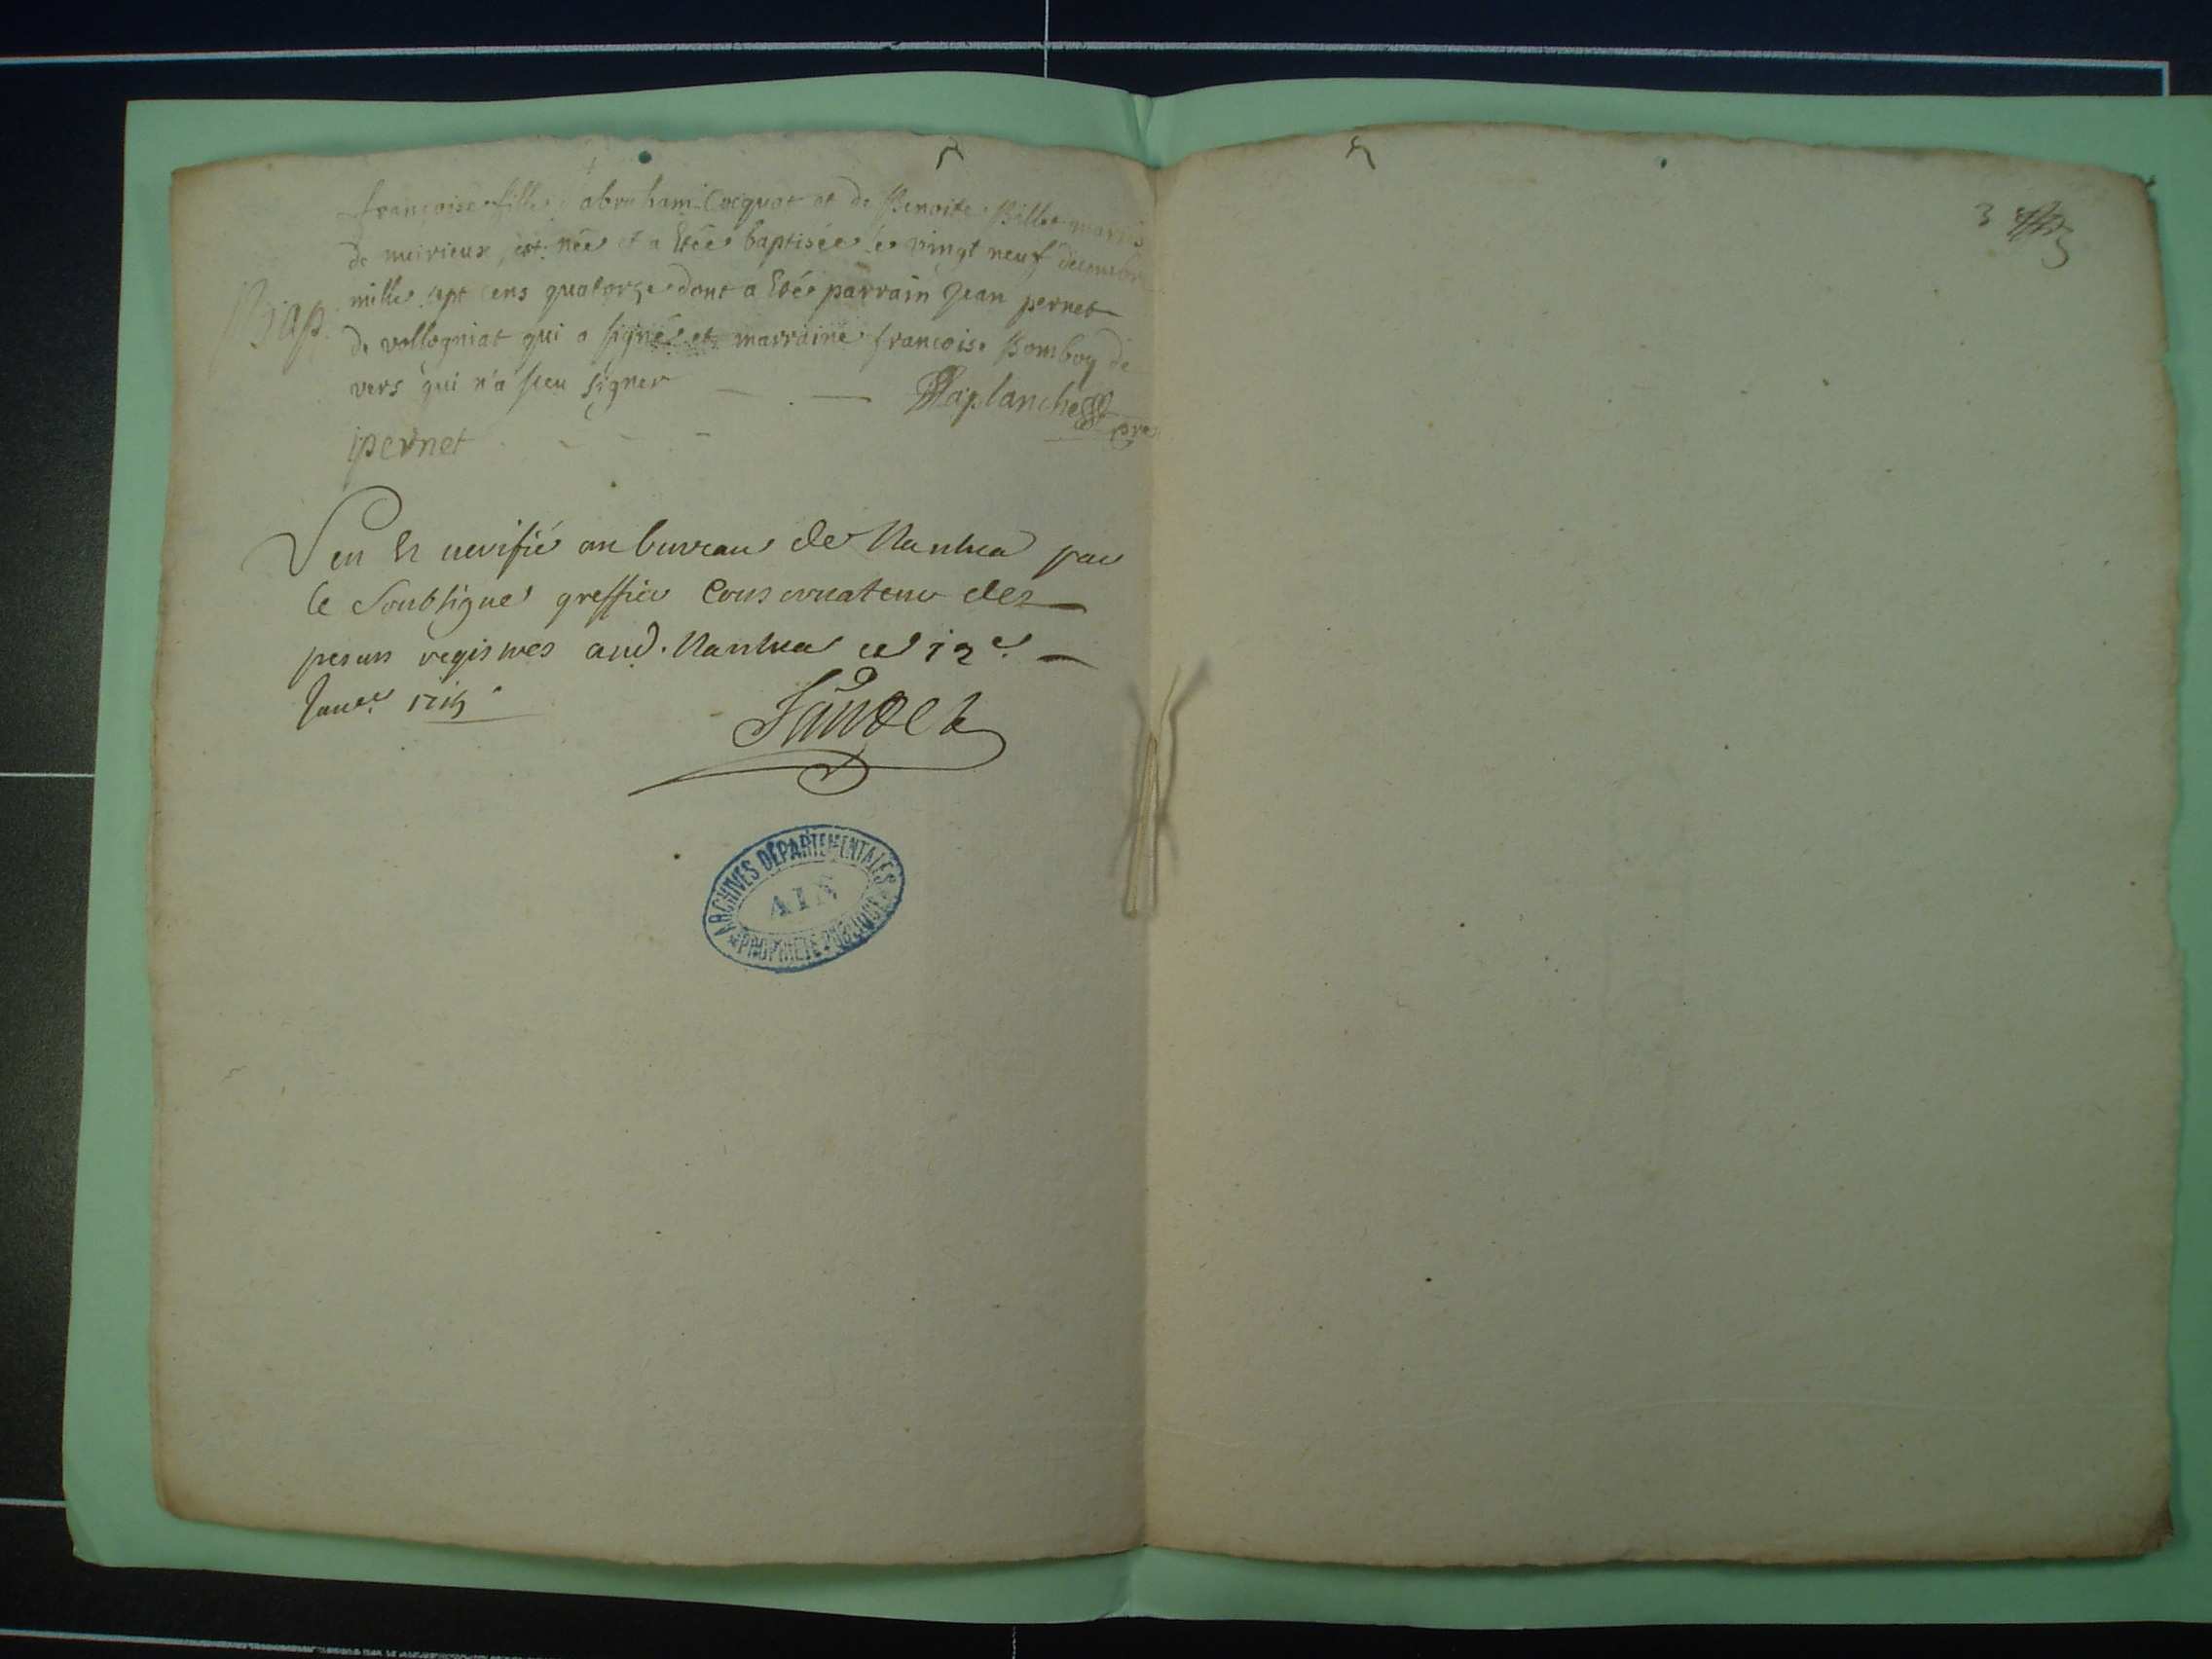 françoise fille d'abraham Cocquat et de Benoite Billet mariés
de meirieux, est née et a étée baptisée le vingt neuf decembre
Bap. mille sept cens quatorze dont a étée parrain Jean pernet
de vollogniat qui a signé et marraine françoise Bomboy de
vers qui n'a sceu signer
Laplanche
pernet
Veu et verifié au bureau de Nantua par
le Soubsigné greffier Conservateur des
presens registres aud. Nantua ce 12e
Janer. 1715
ARCHIVES DEPARTEMENTALES
AIN
PROPRIETE PUBLIQUE
3